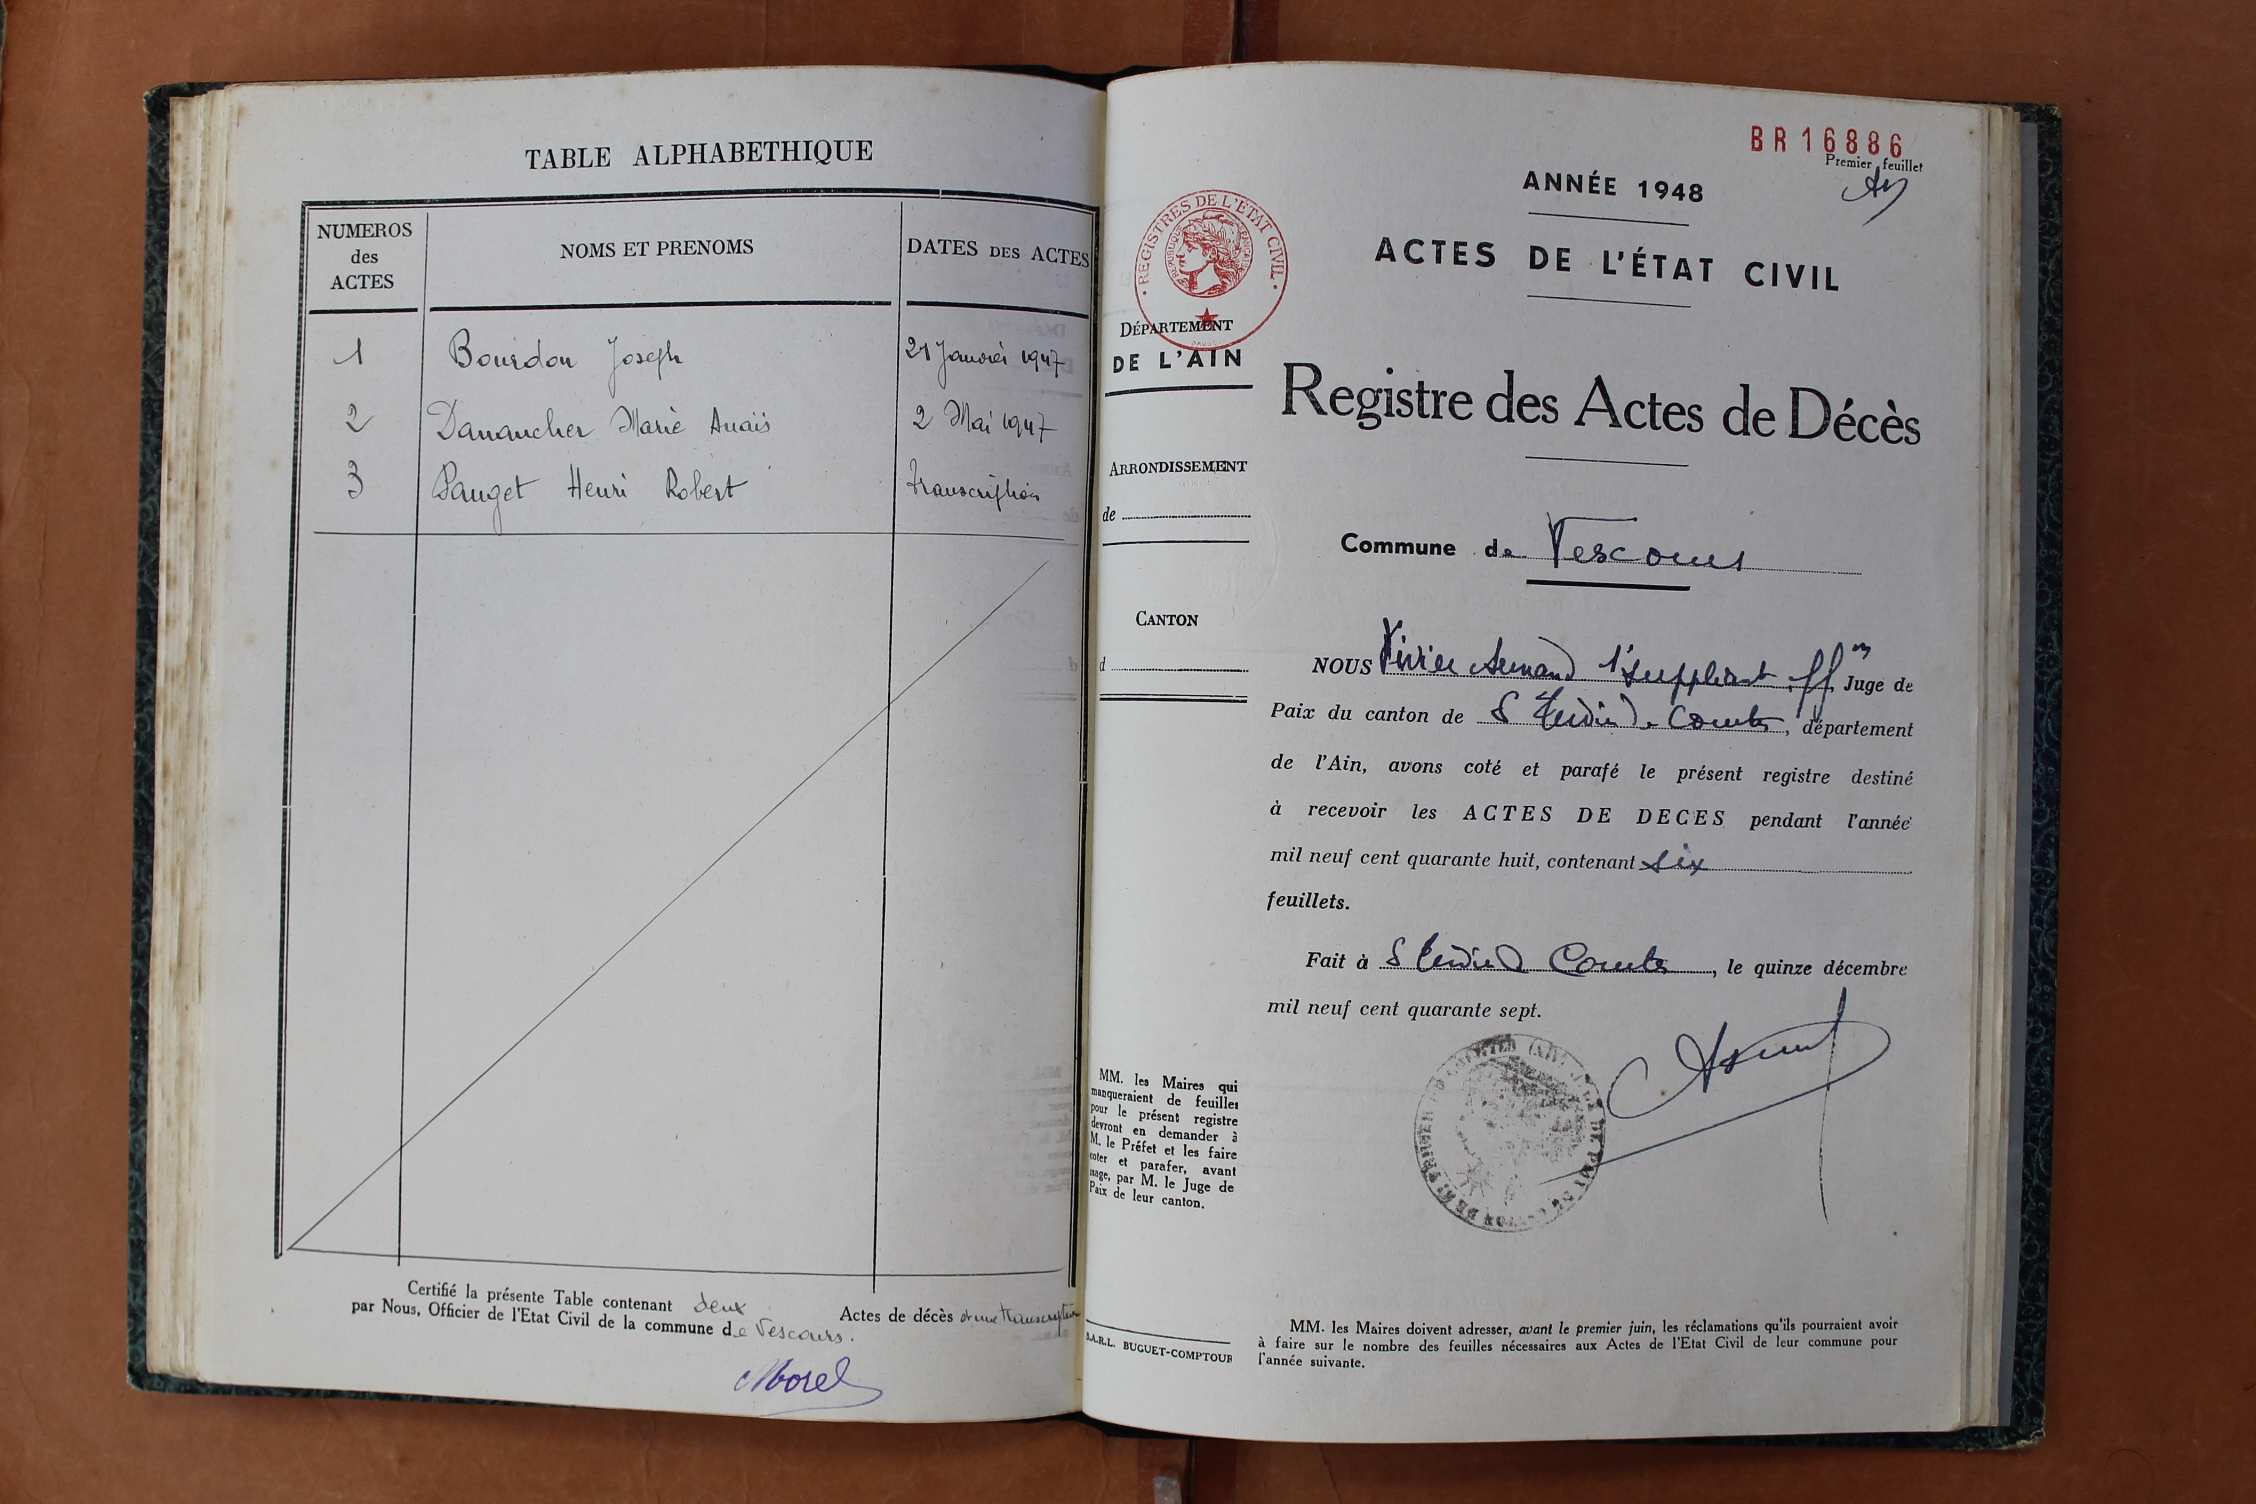 TABLE ALPHABETHIQUE
NUMEROS
des
ACTES
NOMS ET PRENOMS
DATES DES ACTES
1 Bourdon Joseph 21 Janvier 1947
2 Danancher Marie Anaïs 2 Mai 1947
3 Pauget Henri Robert transcription
Certifié la présente Table contenant deux Actes de décès et une transcription
par Nous, Officier de l'Etat Civil de la commune de Vescours.
Morel
BR16886
Premier feuillet
ANNÉE 1948
ACTES DE L'ÉTAT CIVIL
· REGISTRES DE L'ETAT CIVIL ·
REPUBLIQUE FRANÇAISE
DÉPARTEMENT
DE L'AIN
Registre des Actes de Décès
ARRONDISSEMENT
de
Commune de Vescours
CANTON
d
NOUS Armand 1er suppléant ff Juge de
Paix du canton de St Trivier de Courtes, département
de l'Ain, avons coté et parafé le présent registre destiné
à recevoir les ACTES DE DECES pendant l'année
mil neuf cent quarante huit, contenant six
feuillets.
Fait à St Trivier d Courtes, le quinze décembre
mil neuf cent quarante sept.
MM. les Maires qui
manqueraient de feuilles
pour le présent registre
devront en demander à
M. le Préfet et les faire
coter et parafer, avant
usage, par M. le Juge de
Paix de leur canton.
S.A.R.L. BUGUET-COMPTOUR
MM. les Maires doivent adresser, avant le premier juin, les réclamations qu'ils pourraient avoir
à faire sur le nombre des feuilles nécessaires aux Actes de l'Etat Civil de leur commune pour
l'année suivante.